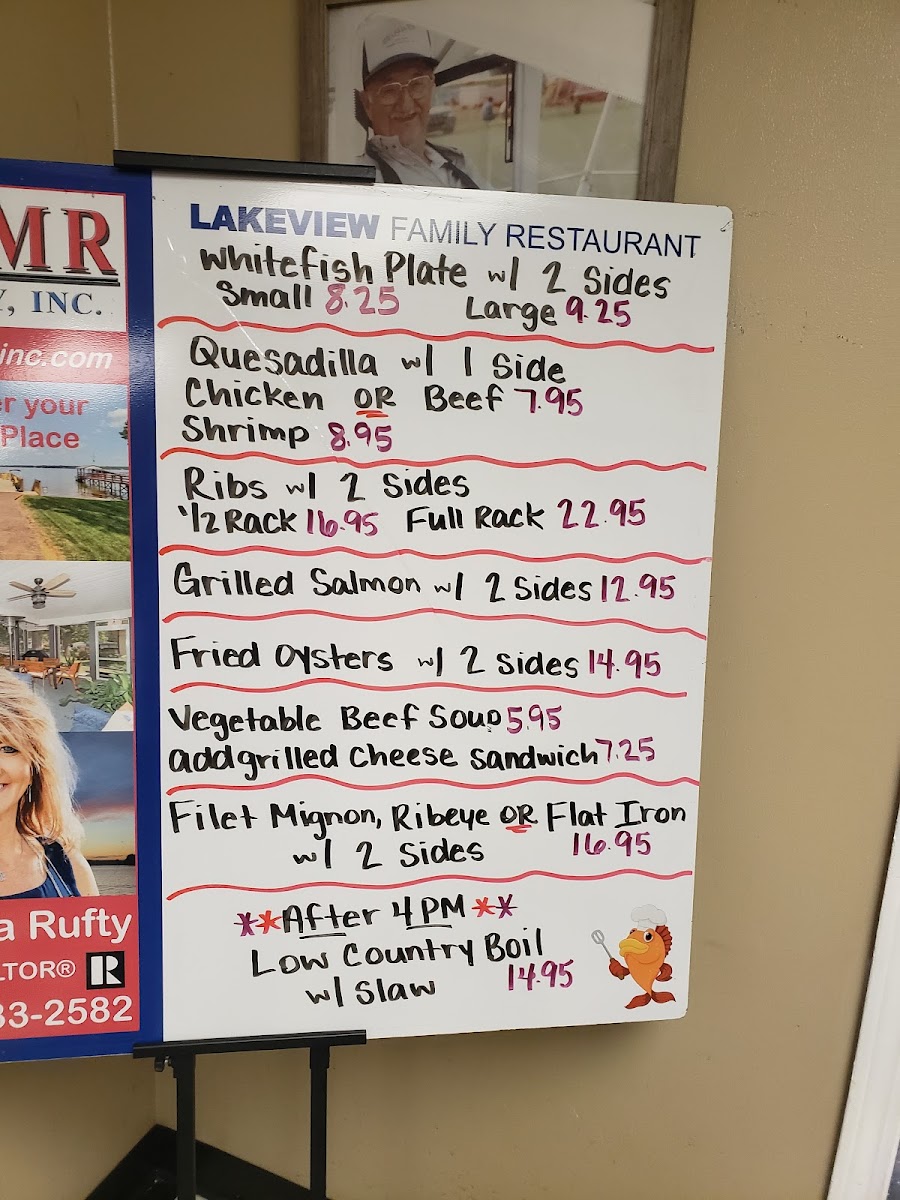 MR
, INC.
inc.com
er your
Place
a Rufty
LTOR® R
33-2582
LAKEVIEW FAMILY RESTAURANT
Whitefish Plate w/ 2 Sides
Small 8.25 Large 9.25
Quesadilla w/ 1 Side
Chicken OR Beef 7.95
Shrimp 8.95
Ribs w/ 2 Sides
1/2 Rack 16.95 Full Rack 22.95
Grilled Salmon w/ 2 Sides 12.95
Fried Oysters w/ 2 Sides 14.95
Vegetable Beef Soup 5.95
add grilled Cheese Sandwich 7.25
Filet Mignon, Ribeye OR Flat Iron
w/ 2 Sides 16.95
**After 4PM**
Low Country Boil
w/ Slaw 14.95